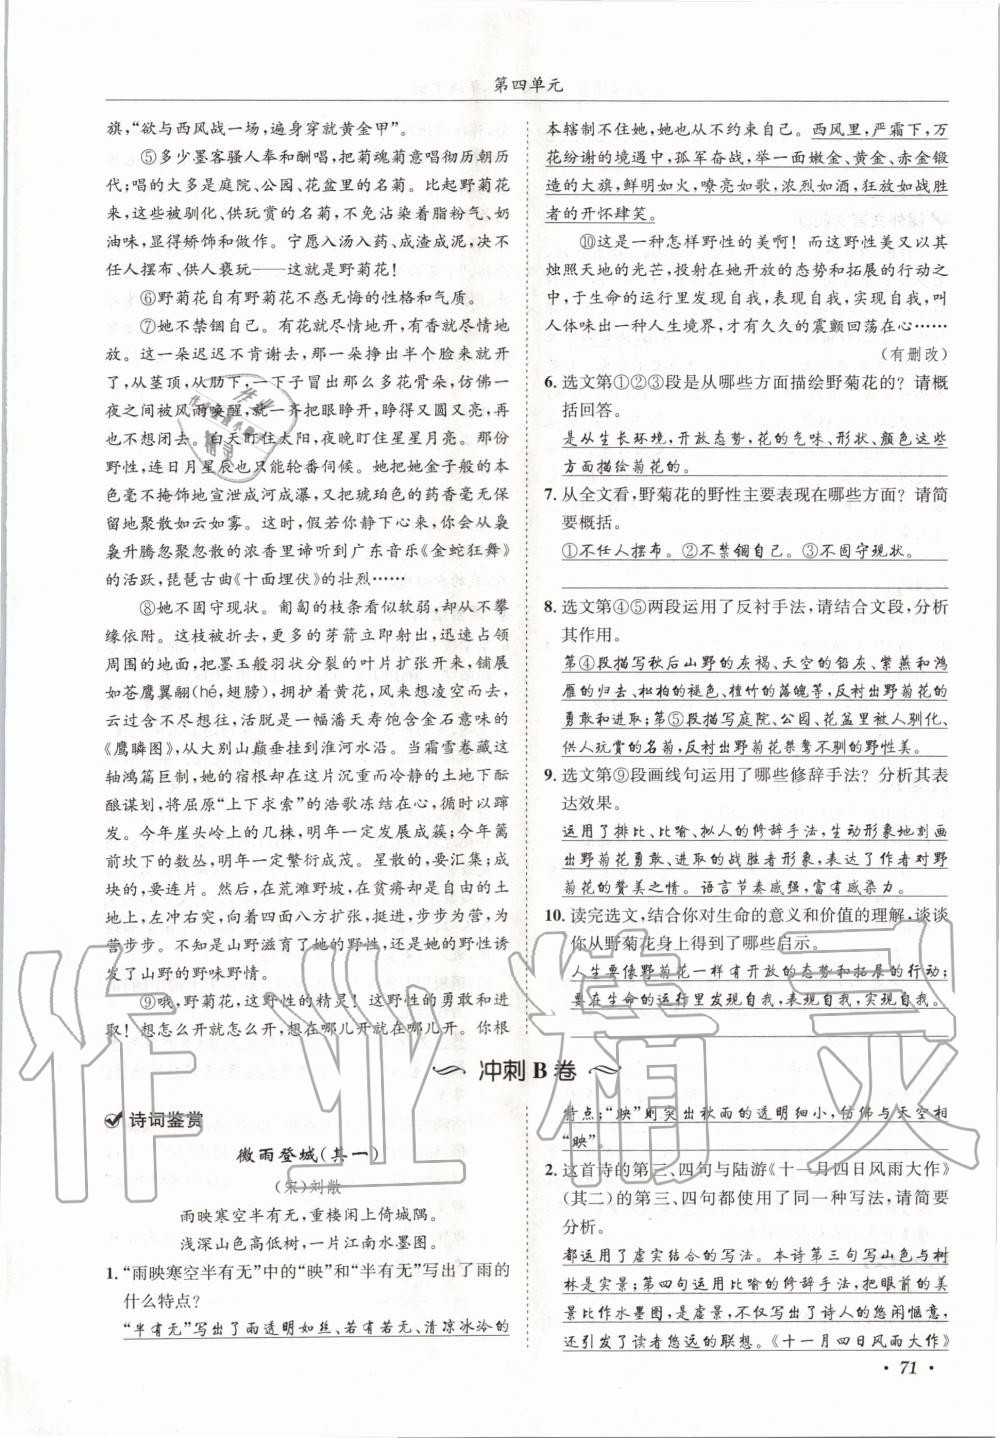 第四单元
旗，“欲与西风战一场，遍身穿就黄金甲”。
⑤多少墨客骚人奉和酬唱，把菊魂菊意唱彻历朝历
代；唱的大多是庭院、公园、花盆里的名菊。比起野菊花
来，这些被驯化、供玩赏的名菊，不免沾染着脂粉气、奶
油味，显得矫饰和做作。宁愿入汤入药、成渣成泥，决不
任人摆布、供人亵玩——这就是野菊花！
⑥野菊花自有野菊花不惑无悔的性格和气质。
⑦她不禁锢自己。有花就尽情地开，有香就尽情地
放。这一朵迟迟不肯谢去，那一朵挣出半个脸来就开
了，从茎顶，从肋下，一下子冒出那么多花骨朵，仿佛一
夜之间被风雨唤醒，就一齐把眼睁开，睁得又圆又亮，再
也不想闭去。白天盯住太阳，夜晚盯住星星月亮。那份
野性，连日月星辰也只能轮番伺候。她把她金子般的本
色毫不掩饰地宣泄成河成瀑，又把琥珀色的药香毫无保
留地聚散如云如雾。这时，假若你静下心来，你会从袅
袅升腾忽聚忽散的浓香里谛听到广东音乐《金蛇狂舞》
的活跃，琵琶古曲《十面埋伏》的壮烈……
⑧她不固守现状。匍匐的枝条看似软弱，却从不攀
缘依附。这枝被折去，更多的芽箭立即射出，迅速占领
周围的地面，把墨玉般羽状分裂的叶片扩张开来，铺展
如苍鹰翼翮(hé，翅膀)，拥护着黄花，风来想凌空而去，
云过含不尽想往，活脱是一幅潘天寿饱含金石意味的
《鹰瞵图》，从大别山巅垂挂到淮河水沿。当霜雪卷藏这
轴鸿篇巨制，她的宿根却在这片沉重而热烈的土地下酝
酿谋划，将屈原“上下求索”的浩歌冻结在心，以图蹿
发。今年崖头岭上的几株，明年一定发展成簇；今年篱
前坎下的数丛，明年一定繁衍成茂。星散的，要汇集；成
块的，要连片。然后，在荒滩野坡，在贫瘠却是自由的土
地上，左冲右突，向着四面八方扩张，挺进，步步为营，为
营步步。不知是山野滋育了她的野性，还是她的野性诱
发了山野的野味野情。
⑨哦，野菊花，这野性的精灵！这野性的勇敢和进
取！想怎么开就怎么开，想在哪儿开就在哪儿开。你根
本辖制不住她，她也从不约束自己。西风里，严霜下，万
花纷谢的境遇中，孤军奋战，举一面嫩金、黄金、赤金锻
造的大旗，鲜明如火，嘹亮如歌，浓烈如酒，狂放如战胜
者的开怀肆笑。
⑩这是一种怎样野性的美啊！而这野性美又以其
烛照天地的光芒，投射在她开放的态势和拓展的行动之
中，于生命的运行里发现自我，表现自我，实现自我，叫
人体味出一种人生境界，才有久久的震颤回荡在心……
(有删改)
6. 选文第①②③段是从哪些方面描绘野菊花的？请概
括回答。
是从生长环境，开放态势，花的气味、形状、颜色这些
方面描绘菊花的。
7. 从全文看，野菊花的野性主要表现在哪些方面？请简
要概括。
①不任人摆布。②不禁锢自己。③不固守现状。
8. 选文第④⑤两段运用了反衬手法，请结合文段，分析
其作用。
第④段描写秋后山野的灰褐、天空的铅灰、紫燕和鸿
雁的归去、松柏的褪色、檀竹的落魄等，反衬出野菊花的
勇敢和进取；第⑤段描写庭院、公园、花盆里被人驯化、
供人玩赏的名菊，反衬出野菊花桀骜不驯的野性美。
9. 选文第⑨段画线句运用了哪些修辞手法？分析其表
达效果。
运用了排比、比喻、拟人的修辞手法，生动形象地刻画
出野菊花勇敢、进取的战胜者形象，表达了作者对野
菊花的赞美之情。语言节奏感强，富有感染力。
10. 读完选文，结合你对生命的意义和价值的理解，谈谈
你从野菊花身上得到了哪些启示。
人生要像野菊花一样有开放的态势和拓展的行动；
要在生命的运行里发现自我，表现自我，实现自我。
冲刺B卷
诗词鉴赏
微雨登城(其一)
(宋)刘敞
雨映寒空半有无，重楼闲上倚城隅。
浅深山色高低树，一片江南水墨图。
1. “雨映寒空半有无”中的“映”和“半有无”写出了雨的
什么特点？
“半有无”写出了雨透明如丝、若有若无、清凉冰冷的
特点；“映”则突出秋雨的透明细小，仿佛与天空相
“映”。
2. 这首诗的第三、四句与陆游《十一月四日风雨大作》
(其二)的第三、四句都使用了同一种写法，请简要
分析。
都运用了虚实结合的写法。本诗第三句写山色与树
林是实景；第四句运用比喻的修辞手法，把眼前的美
景比作水墨图，是虚景，不仅写出了诗人的悠闲惬意，
还引发了读者悠远的联想。《十一月四日风雨大作》
· 71 ·
作业精灵